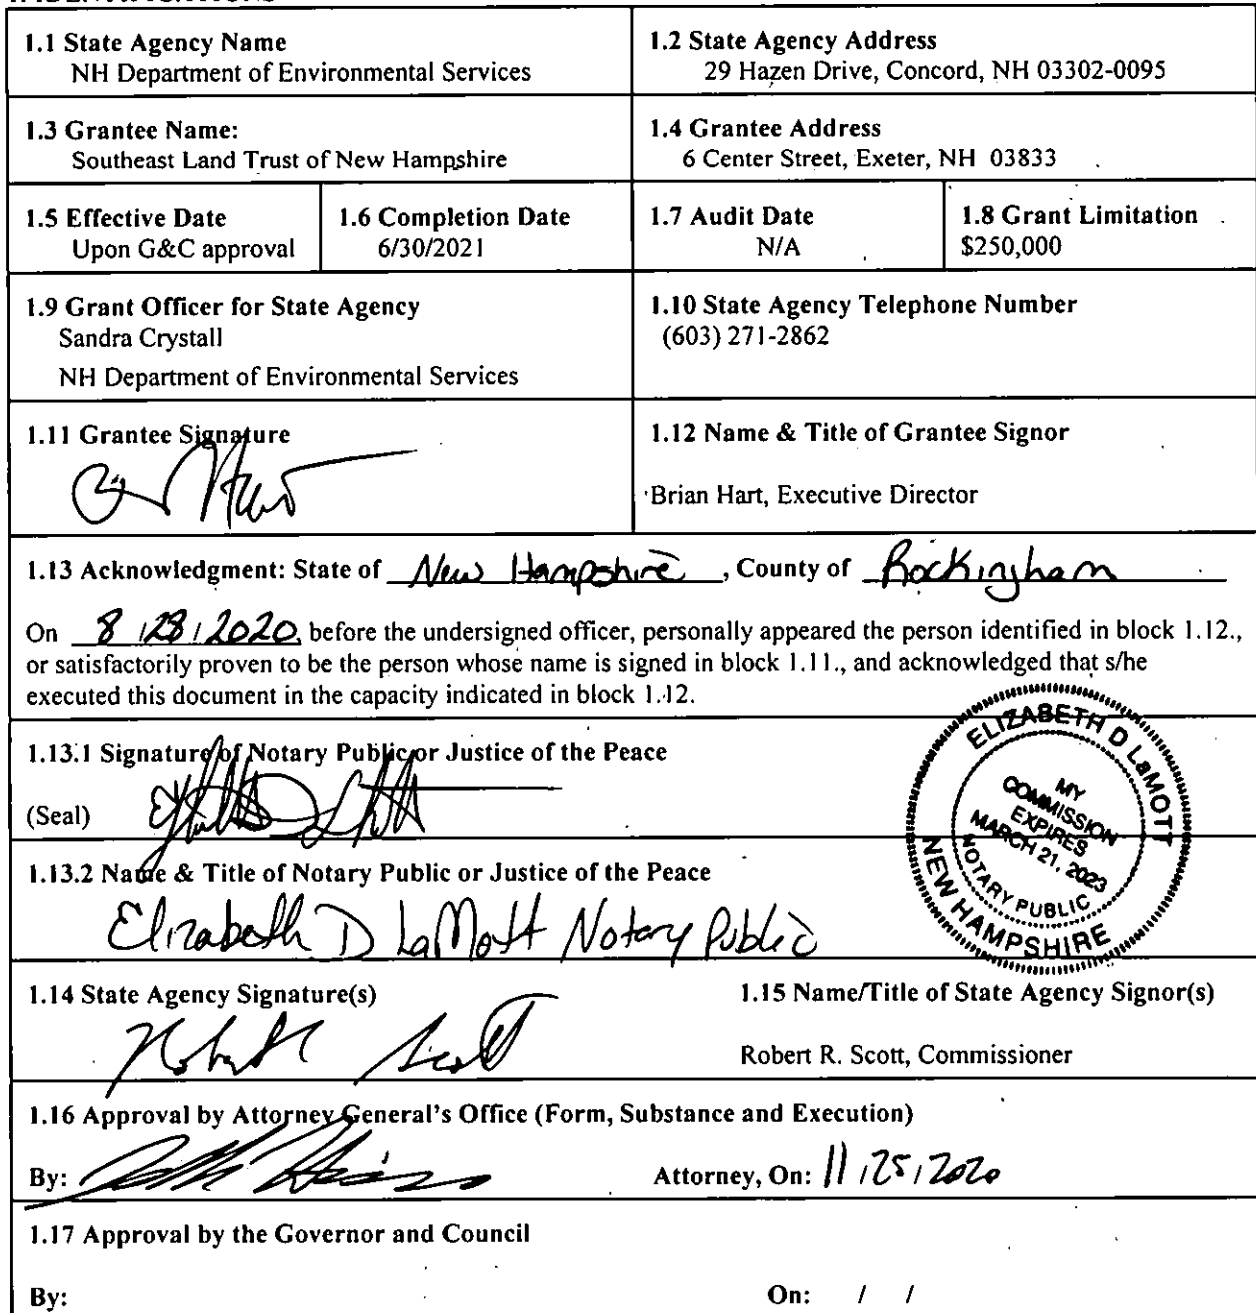 1.1 State Agency Name
NH Department of Environmental Services
1.2 State Agency Address
29 Hazen Drive, Concord, NH 03302-0095
1.3 Grantee Name:
Southeast Land Trust of New Hampshire
1.4 Grantee Address
6 Center Street, Exeter, NH 03833
1.5 Effective Date
Upon G&C approval
1.6 Completion Date
6/30/2021
1.7 Audit Date
N/A
1.8 Grant Limitation
$250,000
1.9 Grant Officer for State Agency
Sandra Crystall
NH Department of Environmental Services
1.10 State Agency Telephone Number
(603) 271-2862
1.11 Grantee Signature
1.12 Name & Title of Grantee Signor
Brian Hart, Executive Director
1.13 Acknowledgment: State of New Hampshire, County of Rockingham
On 8/28/2020, before the undersigned officer, personally appeared the person identified in block 1.12.,
or satisfactorily proven to be the person whose name is signed in block 1.11., and acknowledged that s/he
executed this document in the capacity indicated in block 1.12.
1.13.1 Signature of Notary Public or Justice of the Peace
(Seal)
ELIZABETH D LaMOTT
MY
COMMISSION
EXPIRES
MARCH 21, 2023
NOTARY PUBLIC
NEW HAMPSHIRE
1.13.2 Name & Title of Notary Public or Justice of the Peace
Elizabeth D LaMott Notary Public
1.14 State Agency Signature(s)
Robert Scott
1.15 Name/Title of State Agency Signor(s)
Robert R. Scott, Commissioner
1.16 Approval by Attorney General's Office (Form, Substance and Execution)
By: Attorney, On: 11/25/2020
1.17 Approval by the Governor and Council
By: On: / /